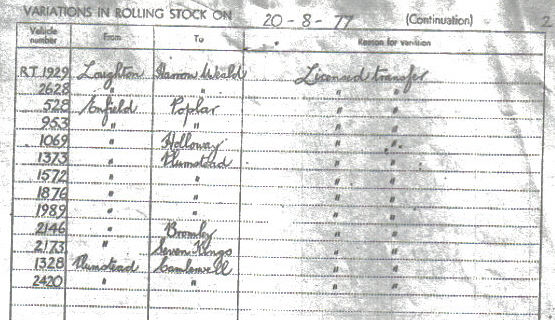 VARIATIONS IN ROLLING STOCK ON 20-8-77 (Continuation) 2
Vehicle number From To Reason for variation
RT 1929 Loughton Harrow Weald Licensed transfer
2628 " " " "
528 Enfield Poplar " "
953 " " " "
1069 " Holloway " "
1373 " Plumstead " "
1572 " " " "
1876 " " " "
1989 " " " "
2146 " Bromley " "
2173 " Seven Kings " "
1328 Plumstead Camberwell " "
2420 " " " "